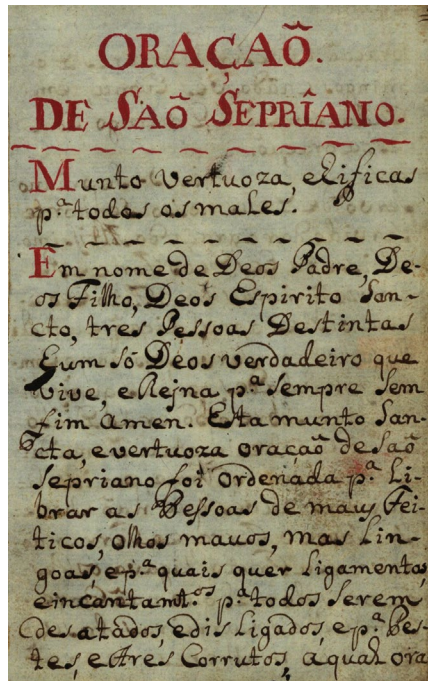 ORAÇAÕ.
DE SAÕ SEPRÎANO.
Munto vertuoza, e Rificas
p.ª todos os males.
Em nome de Deos Padre, De-
os Filho, Deos Espirito San-
cto, tres Pessoas Destintas
Eum só Deos verdadeiro que
vive, e Rejna p.ª sempre sem
fim amen. Esta munto San-
cta, evertuoza oraçaõ de Saõ
Sepriano foi ordenada p.ª Li-
brar as Pessoas de maus Fei-
ticos, olhos mauos, mas Lin-
goas, ep.ª quais quer Ligamentos,
eincantamt.ºˢ p.ª todos serem
desatados, edis Ligados, ep.ª Pes-
tes, e Ares Corrutos, aqual ora